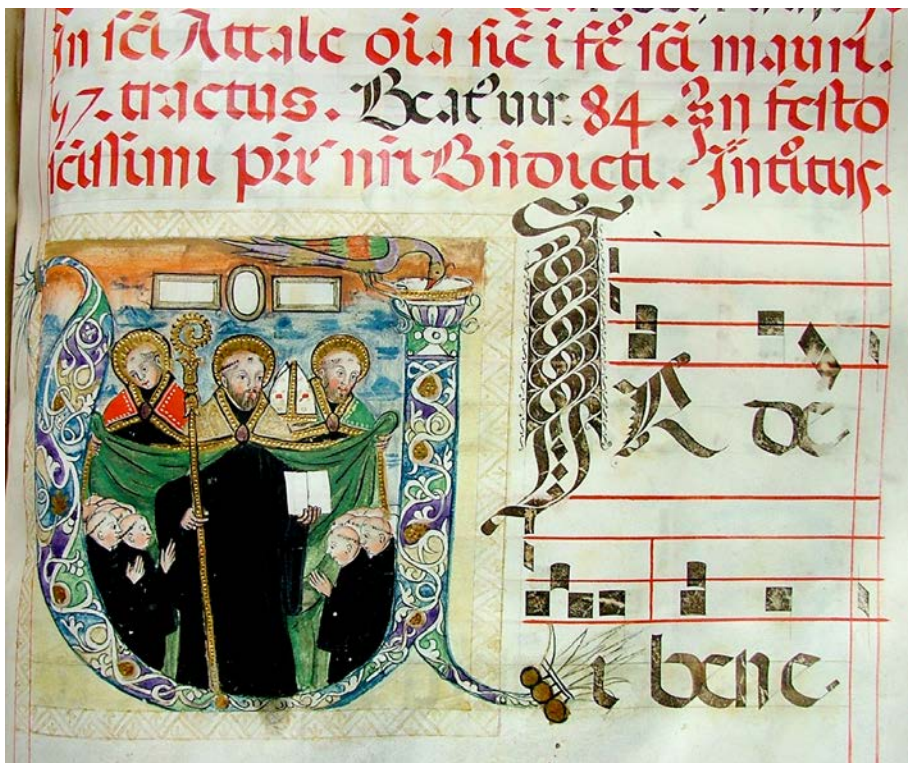 In sci Attale oia sic i fc sci mauri.
tractus. Beat' vir. 84. In festo
scissimi pris nri Bndicti. Introitus.
IR de
i bene